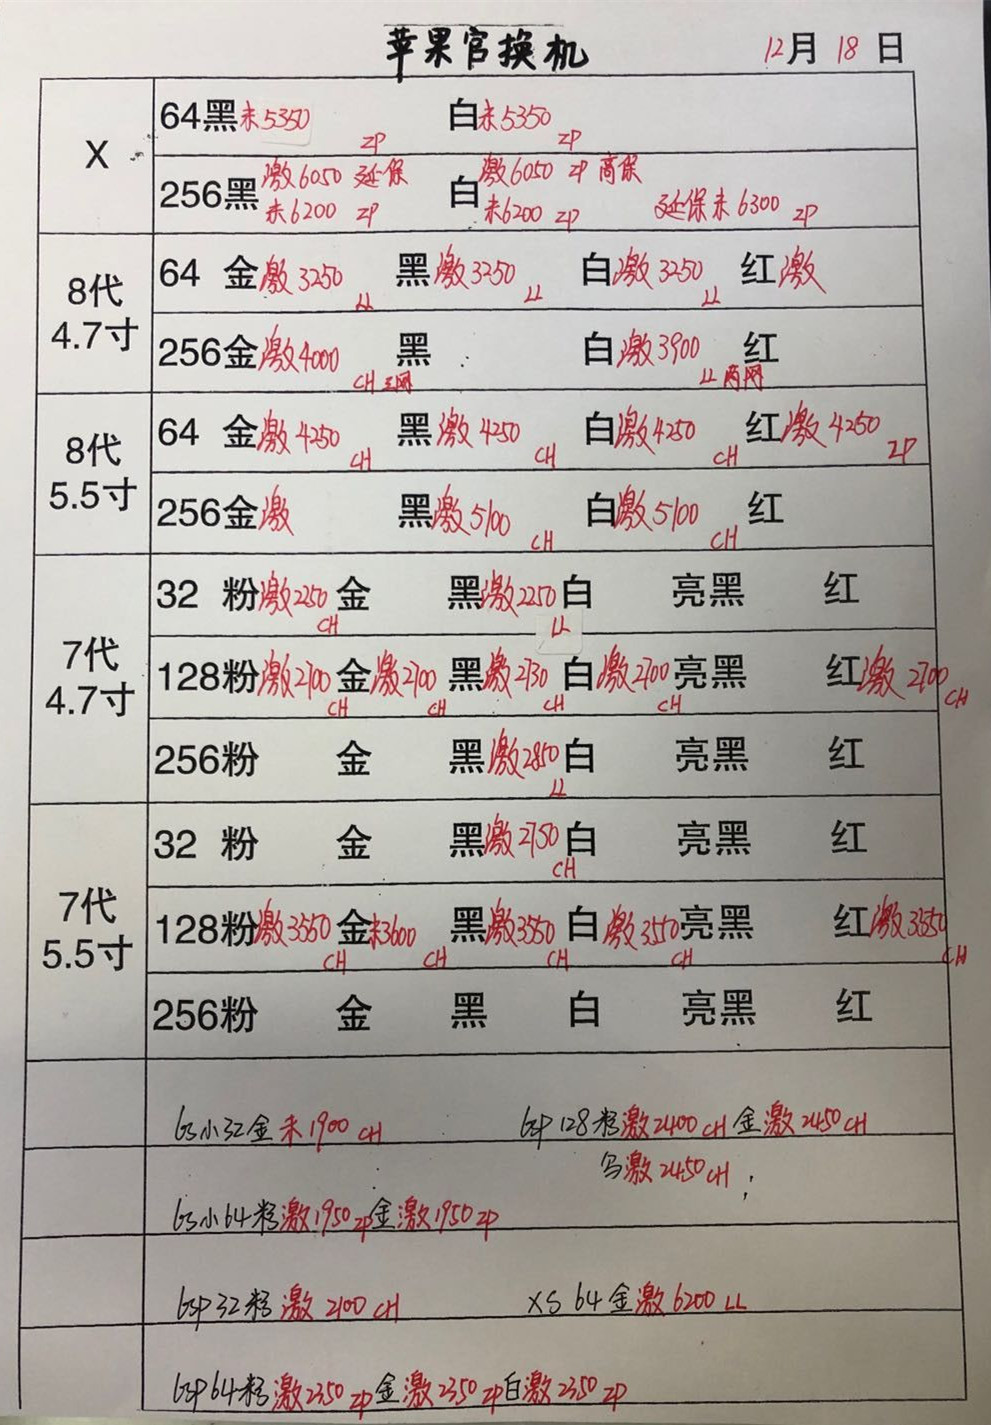 苹果官换机 12月18日
X
64黑未5350 ZP 白未5350 ZP
256黑激6050 延保 未6200 ZP 白激6050 ZP 商保 未6200 ZP 延保未6300 ZP
8代
4.7寸
64 金激3250 LL 黑激3250 LL 白激3250 LL 红激
256金激4000 CH 三网 黑 白激3900 LL 两网 红
8代
5.5寸
64 金激4250 CH 黑激4250 CH 白激4250 CH 红激4250 ZP
256金激 黑激5100 CH 白激5100 CH 红
7代
4.7寸
32 粉激2250 CH 金 黑激2250 LL 白 亮黑 红
128粉激2700 CH 金激2700 CH 黑激2730 CH 白激2700 CH 亮黑 红激2700 CH
256粉 金 黑激2850 LL 白 亮黑 红
7代
5.5寸
32 粉 金 黑激2750 CH 白 亮黑 红
128粉激3550 CH 金未3600 CH 黑激3550 CH 白激3550 CH 亮黑 红激3550 CH
256粉 金 黑 白 亮黑 红
6s小32金未1900 CH 6sp128粉激2400 CH 金激2450 CH
激2450 CH
6s小64粉激1950 ZP 金激1950 ZP
6sp32粉激2100 CH XS 64金激6200 LL
6sp64粉激2350 ZP 金激2350 ZP 白激2350 ZP